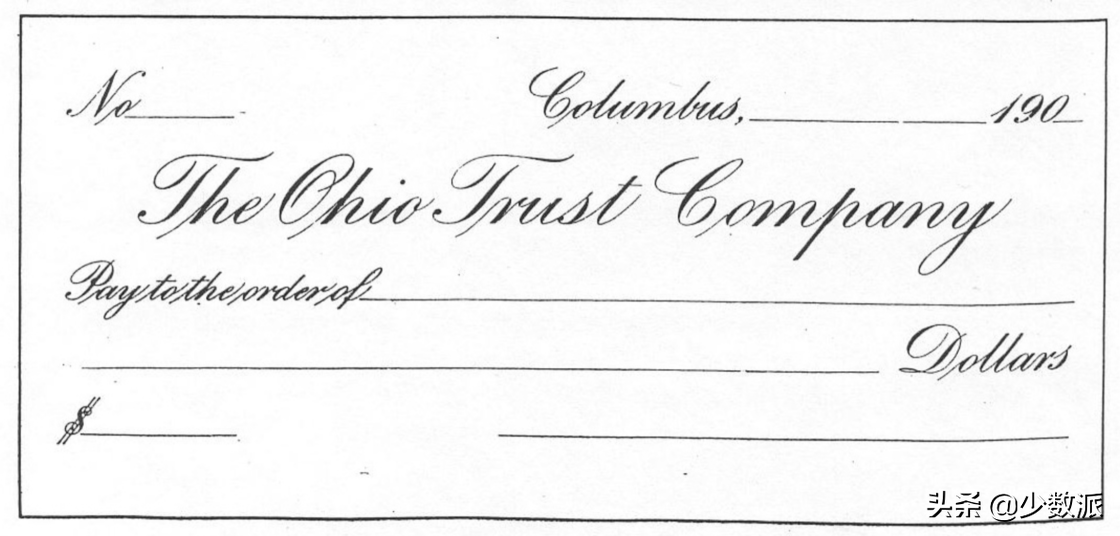 No
Columbus, 190
The Ohio Trust Company
Pay to the order of
Dollars
$
头条 @少数派